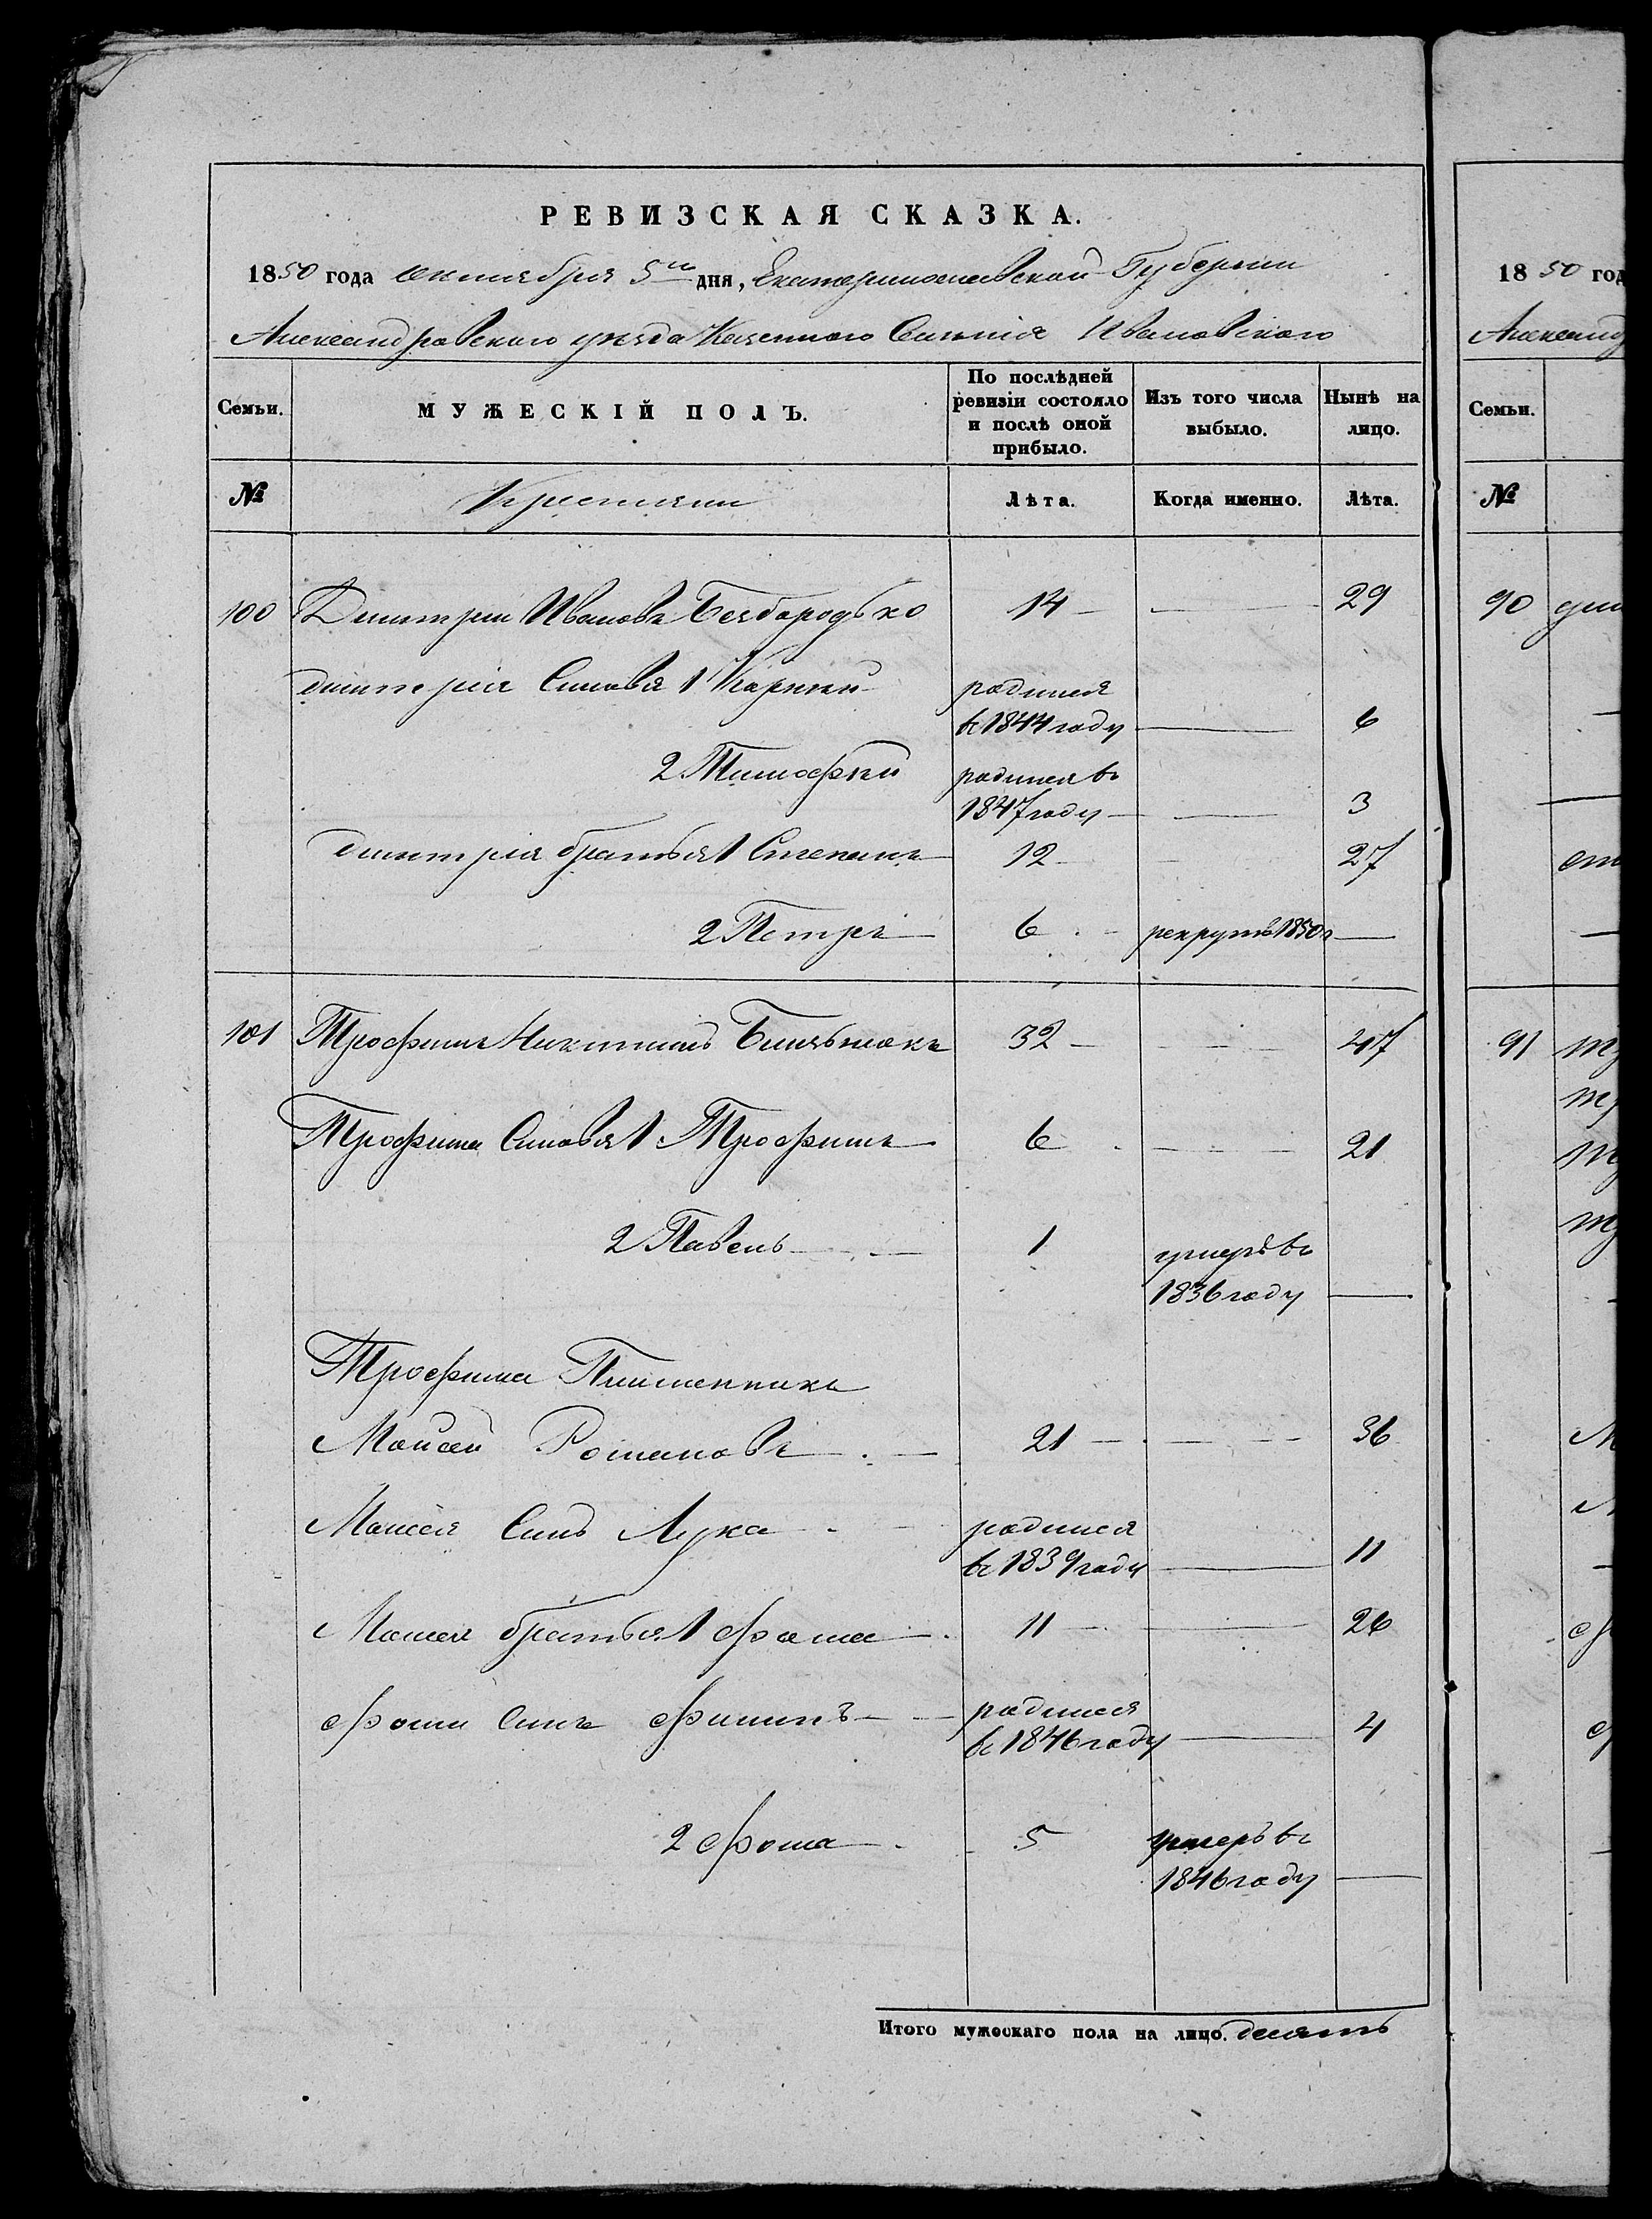 РЕВИЗСКАЯ СКАЗКА.
1850 года октября 5го дня, Екатеринославской Губернии
Александровского уезда Казенного Селенія Ивановского
Семьи.
МУЖЕСКІЙ ПОЛЪ.
По послѣдней ревизіи состояло и послѣ оной прибыло.
Изъ того числа выбыло.
Нынѣ на лицо.
№
Крестяни
Лѣта.
Когда именно.
Лѣта.
100 Дмитрий Ивановъ Безбородько 14 29
дмитрія Синовя 1 Карний родился
въ 1844 году 6
2 Тимофѣй родился въ
1847 году 3
дмитрія братья 1 Степанъ 12 27
2 Петръ 6 рекрутъ 1850г
101 Трофимъ Никитинъ 32 47
Трофима Синовя 1 Трофимъ 6 21
2 Павелъ 1 умеръ въ
1836 году
Трофима Племенникъ
Мойсей Романовъ 21 36
Моисея Синъ Лука родился
въ 1839 году 11
Моисея братья 1 Фома 11 26
Фоми Синъ Филипъ родился
въ 1846 году 4
2 Фома 5 умеръ въ
1846 году
Итого мужескаго пола на лицо. десять
18 50 год
Александ
Семьи.
№
90
91